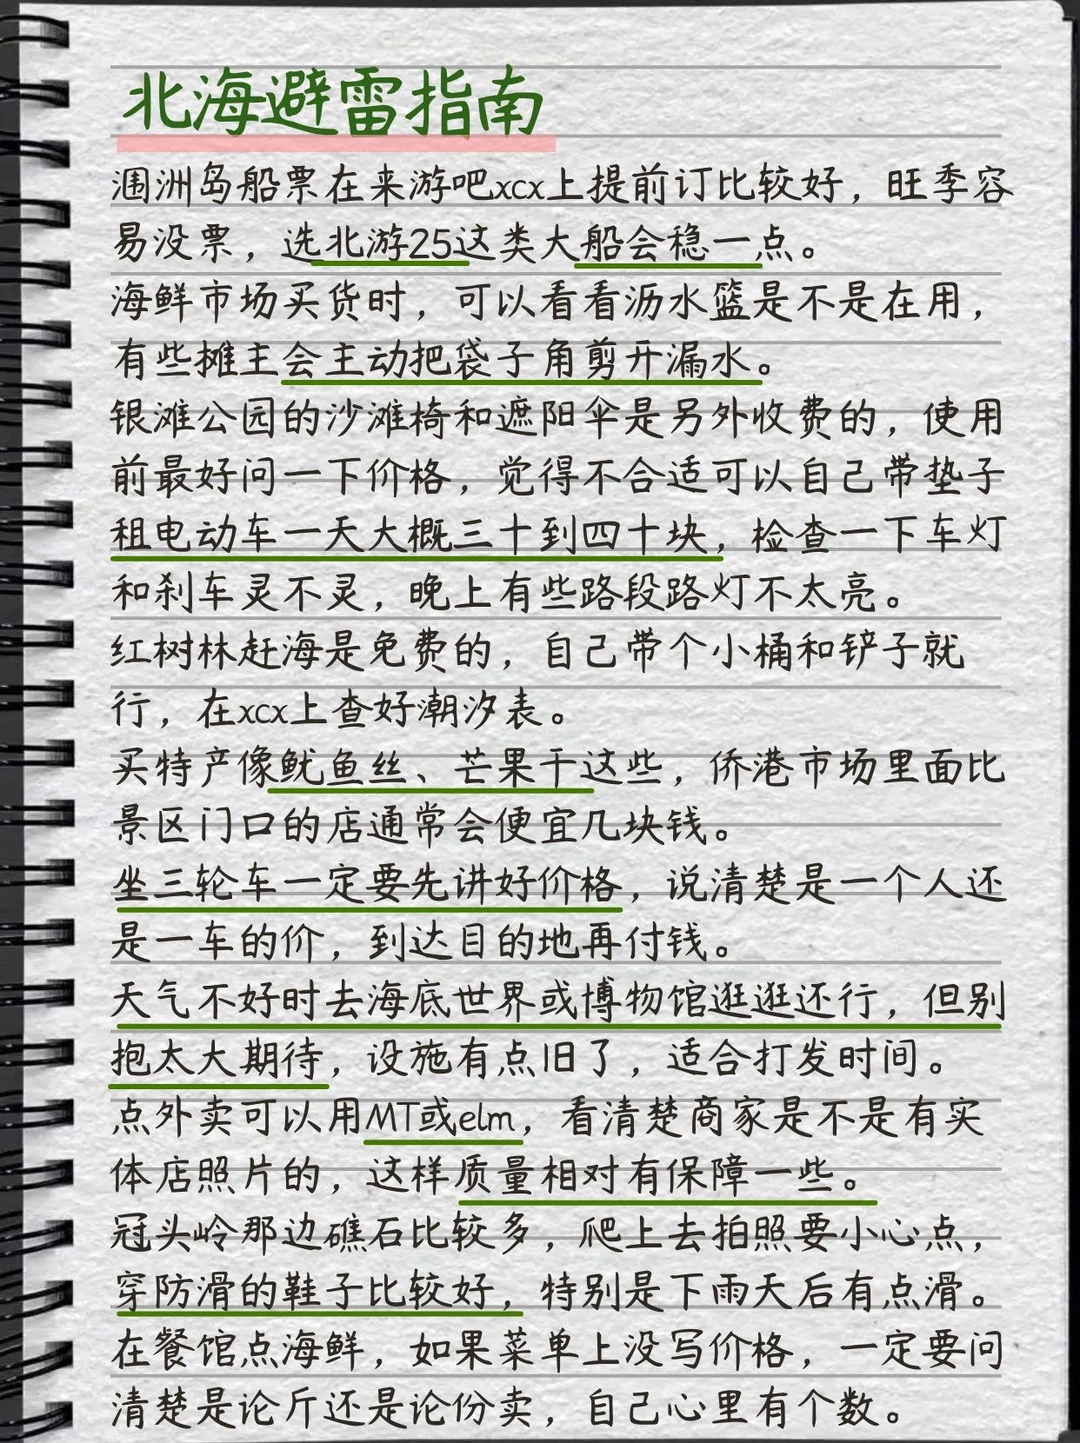 北海避雷指南
涠洲岛船票在来游吧xcx上提前订比较好，旺季容
易没票，选北游25这类大船会稳一点。
海鲜市场买货时，可以看看沥水篮是不是在用，
有些摊主会主动把袋子角剪开漏水。
银滩公园的沙滩椅和遮阳伞是另外收费的，使用
前最好问一下价格，觉得不合适可以自己带垫子
租电动车一天大概三十到四十块，检查一下车灯
和刹车灵不灵，晚上有些路段路灯不太亮。
红树林赶海是免费的，自己带个小桶和铲子就
行，在xcx上查好潮汐表。
买特产像鱿鱼丝、芒果干这些，侨港市场里面比
景区门口的店通常会便宜几块钱。
坐三轮车一定要先讲好价格，说清楚是一个人还
是一车的价，到达目的地再付钱。
天气不好时去海底世界或博物馆逛逛还行，但别
抱太大期待，设施有点旧了，适合打发时间。
点外卖可以用MT或elm，看清楚商家是不是有实
体店照片的，这样质量相对有保障一些。
冠头岭那边礁石比较多，爬上去拍照要小心点，
穿防滑的鞋子比较好，特别是下雨天后有点滑。
在餐馆点海鲜，如果菜单上没写价格，一定要问
清楚是论斤还是论份卖，自己心里有个数。